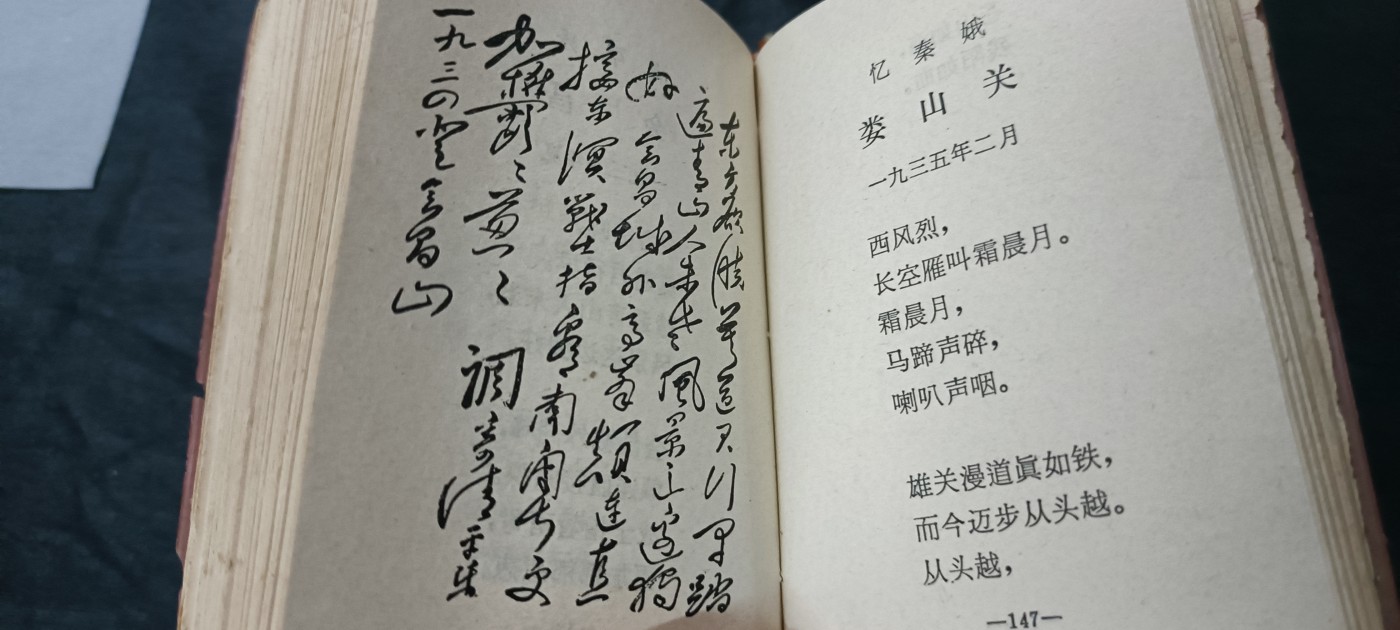 东方欲晓莫道君行早踏
遍青山人未老風景这边独
好会昌城外高峯顛連直
接东溟戰士指看南粤更
加鬱々葱々 調寄清平乐
一九三四登会昌山
忆秦娥
娄山关
一九三五年二月
西风烈，
长空雁叫霜晨月。
霜晨月，
马蹄声碎，
喇叭声咽。
雄关漫道眞如铁，
而今迈步从头越。
从头越，
—147—